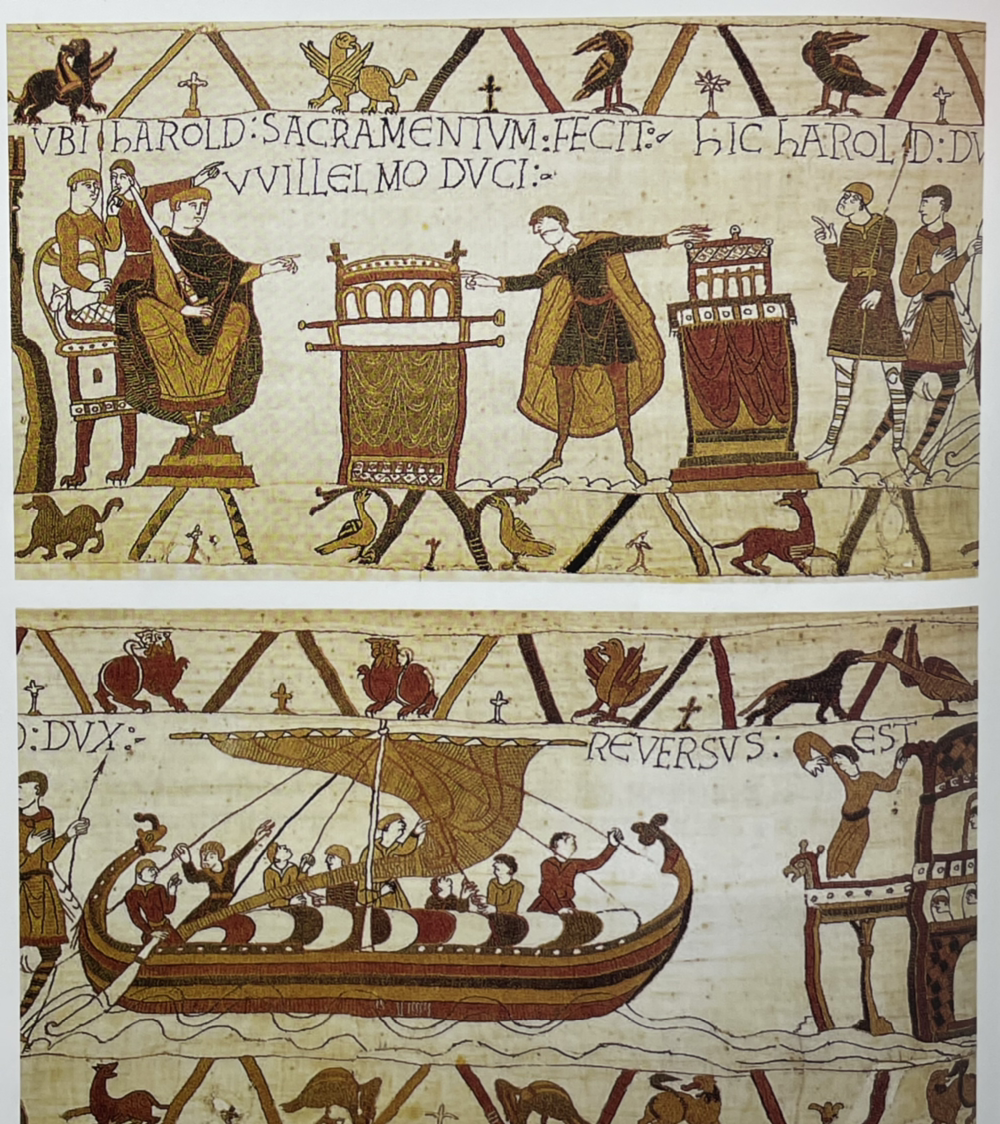 VBI hAROLD:SACRAMENTVM:FECIT: hIC hAROLD:DV
VVILLELMO DVCI:
D:DVX: REVERSVS: EST